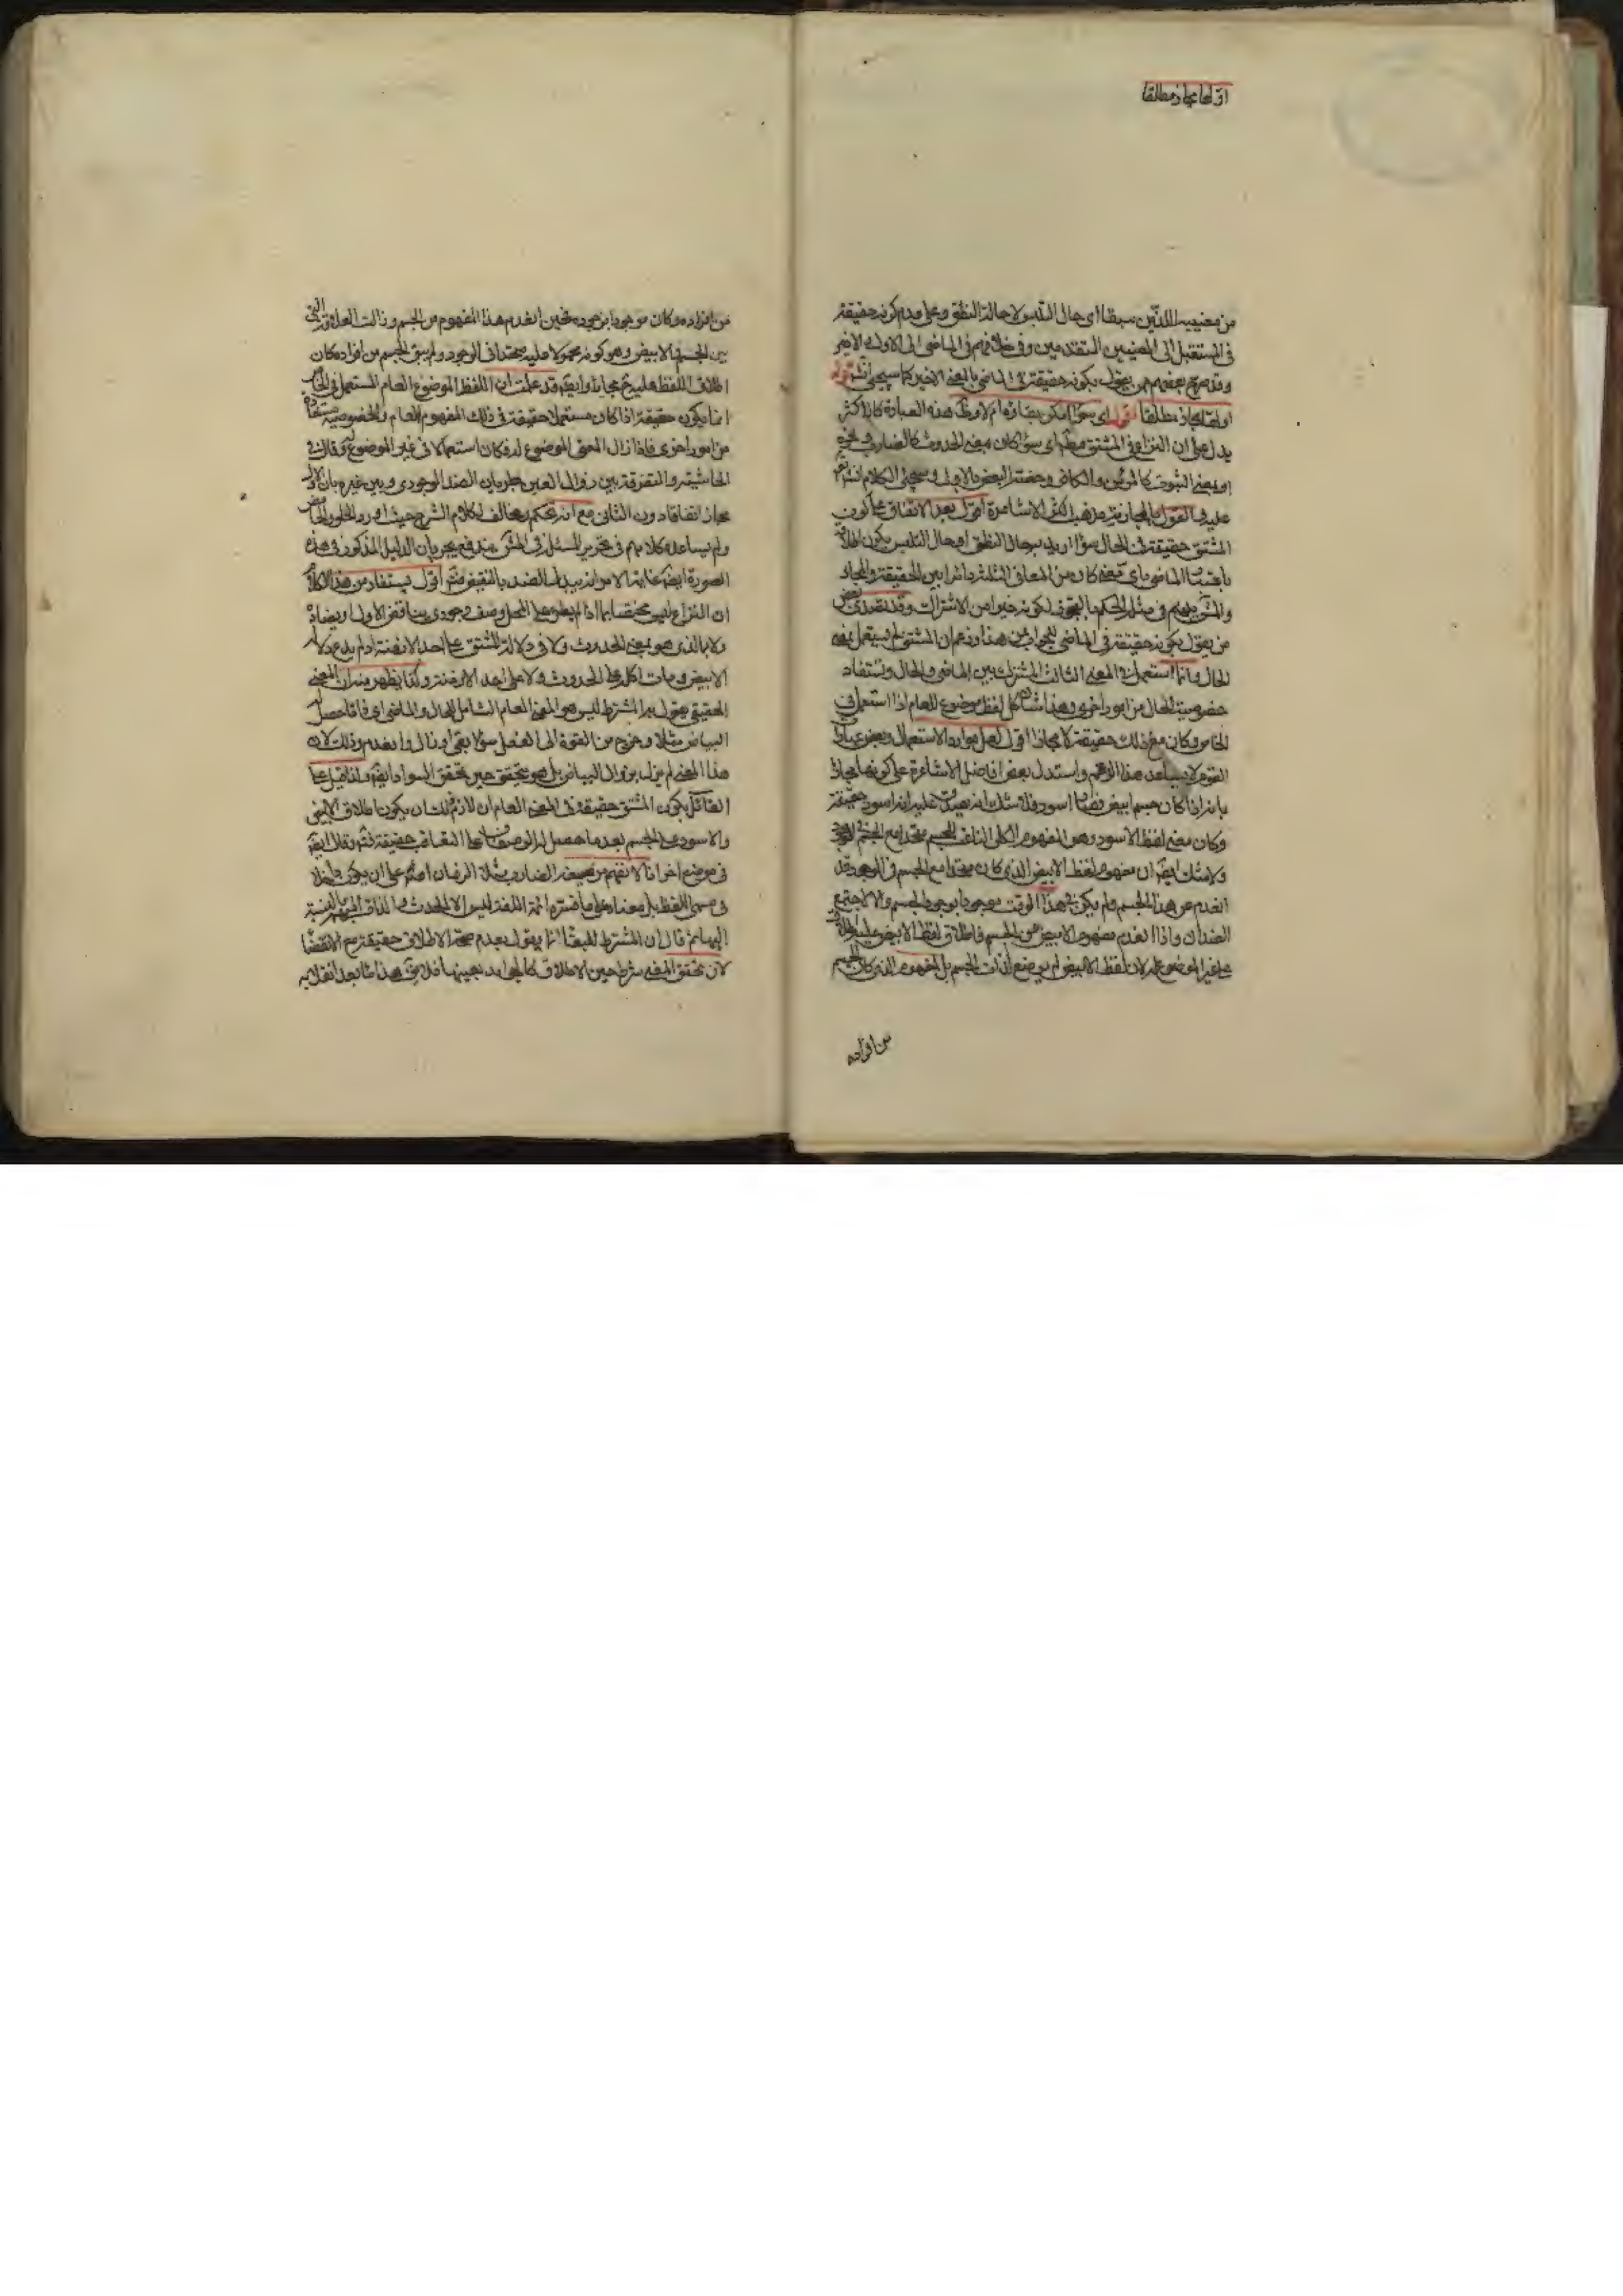 او لها مجاز مطلقا
من معنييه اللذين سبقا اى حال التلبس لا حالة النطق وعلى عدم كونه حقيقة
فى المستقبل الى المعنيين المتقدمين وفى خلافهم فى الماضى الى الاول الاخير
وقد صرح بعضهم ممن يقول بكونه حقيقة فى الماضى بالمعنى الاخير كما سيجئ
مجاز مطلقا اى سواء امكن بقاؤه ام لا وظ هذه العبارة كالاكثر
يدل على ان النزاع فى المشتق مط اى سواء كان بمعنى الحدوث كالضارب
او بمعنى الثبوت كالمؤمن والكافر وخصه البعض بالاول وسيجئ الكلام
عليه القول بالمجازية مذهب اكثر الاشاعرة اقول بعد الاتفاق على كون
المشتق حقيقة فى الحال سواء اريد به حال النطق او حال التلبس يكون
باعتبار الماضى باى معنى كان من المعانى الثلثة دائرا بين الحقيقة والمجاز
فى مثله الحكم بالتجوز لكونه خيرا من الاشتراك وقد
من يقول بكونه حقيقة فى الماضى للجواب عن هذا وزعم ان المشتق لم يستعمل بمعنى
الحال وانما استعمل فى المعنى الثالث المشترك بين الماضى والحال وتستفاد
خصوصية الحال من امور اخرى وهذا شان كل لفظ موضوع للعام اذا استعمل فى
الخاص وكان مع ذلك حقيقة لا مجازا اقول لعل موارد الاستعمال وبعض عبارات
القوم لا يساعد هذا الزعم واستدل بعض افاضل الاشاعرة على كونها مجازا
بانه اذا كان جسم ابيض فصار اسود فلا شك انه يصدق عليه انه اسود حقيقة
وكان معنى لفظ الاسود وهو المفهوم الكلى متحدا مع الجسم فى الوجود
ولا شك ايضا ان مفهوم لفظ الابيض الذى كان متحدا مع الجسم فى الوجود قد
انعدم عن هذا الجسم ولم يكن فى هذا الوقت موجودا بوجود الجسم والا لاجتمع
الضدان واذا انعدم مفهوم الابيض عن الجسم فاطلاق لفظ الابيض عليه اطلاق
على غير الموضوع له لان لفظ الابيض لم يوضع لذات الجسم بل لمفهوم الذى كان الجسم
من افراده
من افراده وكان موجودا بوجوده فحين انعدم هذا المفهوم من الجسم وزالت العلاقة التى
بين الجسم والابيض وهو كونه محمولا عليه متحدا فى الوجود ولم يبق الجسم من افراده كان
اطلاق اللفظ عليه ح مجازا وايضا قد علمت ان اللفظ الموضوع للعام المستعمل فى الخاص
انما يكون حقيقة اذا كان مستعملا حقيقة فى ذلك المفهوم العام والخصوصية مستفادة
من امور اخرى فاذا زال المعنى الموضوع له فكان استعمالا فى غير الموضوع له وقال فى
الحاشية والتفرقة بين زوال العين بطريان الضد الوجودى وبين غيره بان الاول
مجاز اتفاقا دون الثانى مع انه تحكم مخالف لكلام الشرح حيث اورد
ولم يساعده كلامهم فى تحرير المسئلة مندفع بجريان الدليل المذكور فى هذه
الصورة ايضا غاية الامر انه يبدل الضد بالنقيض اقول يستفاد من هذا الكلام
ان النزاع ليس مختصا بما اذا لم يطرء على المحل وصف وجودى يناقض الاول او يضاده
ولا بالذى هو بمعنى الحدوث ولا فى دلالة المشتق على احد الازمنة
الابيض على الحدوث ولا على احد الازمنة وكذا يظهر منه ان المعنى
الحقيقى يقول به المشترط ليس هو المعنى العام الشامل للحال والماضى اى ذاتا حصل له
البياض مثلا وخرج من القوة الى الفعل سواء بقى او زال وانعدم وذلك لان
هذا المعنى لم يزل بزوال البياض بل هو متحقق حين تحقق السواد ايضا
القائل بكون المشتق حقيقة فى المعنى العام ان لازم ذلك ان يكون اطلاق الابيض
والاسود على الجسم بعد ما حصل له الوصفان على التعاقب حقيقة وقال ايضا
فى موضع اخر انا لا نفهم من صيغة الضارب مثلا الزمان اصلا على ان يكون داخلا
فى مسمى اللفظ بل معناه على ما فسره ائمة اللغة ليس الا الحدث والذات المبهم بالنسبة
اليها ثم قال ان المشترط للبقاء انما يقول بعدم صحة الاطلاق حقيقة مع الانقضاء
لان تحقق المعنى شرط حين الاطلاق